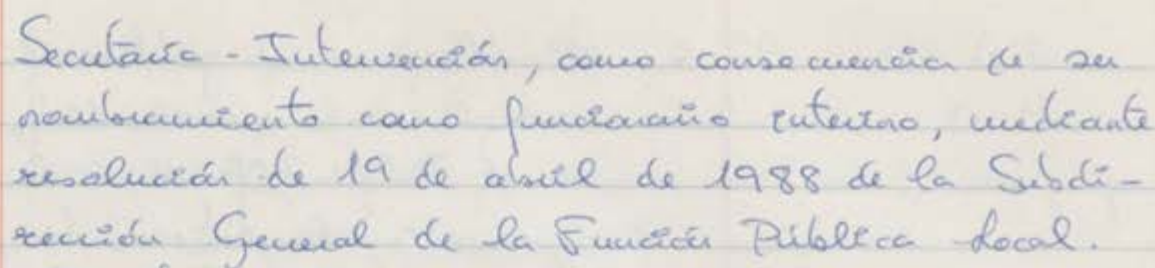 Secretaría - Intervención, como consecuencia de su
nombramiento como funcionario interino, mediante
resolución de 19 de abril de 1988 de la Subdi-
rección General de la Función Pública Local.